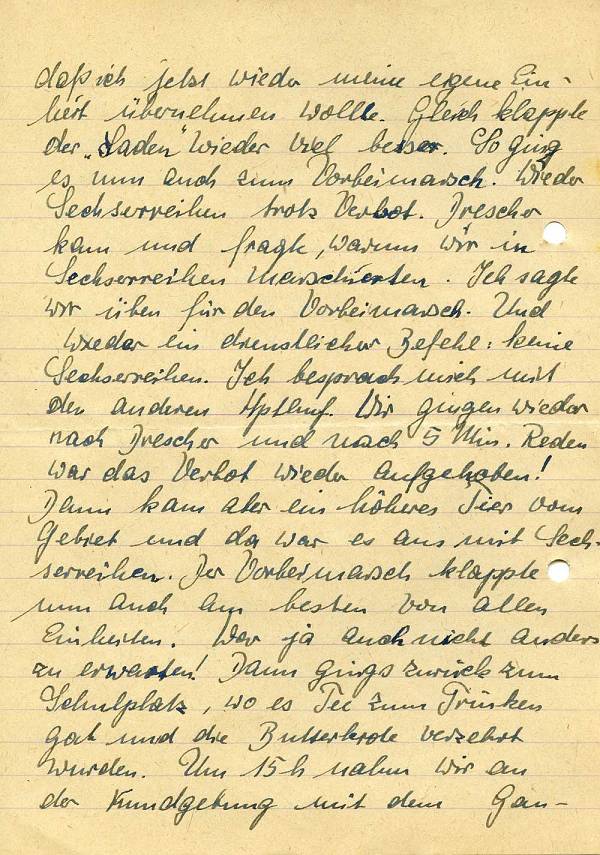 daß ich jetzt wieder meine eigene Ein-
heit übernehmen wollte. Gleich klappte
der „Laden" wieder viel besser. So ging
es nun auch zum Vorbeimarsch. Wieder
Sechserreihen trotz Verbot. Drescher
kam und fragte, warum wir in
Sechserreihen marschierten. Ich sagte
wir üben für den Vorbeimarsch. Und
wieder ein dienstlicher Befehl: keine
Sechserreihen. Ich besprach mich mit
den anderen Hptlgf. Wir gingen wieder
nach Drescher und nach 5 Min. Reden
war das Verbot wieder aufgehoben!
Dann kam aber ein höheres Tier vom
Gebiet und da war es aus mit Sech-
serreihen. Der Vorbeimarsch klappte
nun auch am besten von allen
Einheiten. War ja auch nicht anders
zu erwarten! Dann gings zurück zum
Schulplatz, wo es Tee zum Trinken
gab und die Butterbrote verzehrt
wurden. Um 15 h nahm wir an
der Kundgebung mit dem Gau-